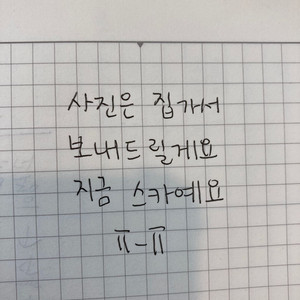 사진은 집가서
보내드릴게요
지금 스카예요
ㅠ-ㅠ